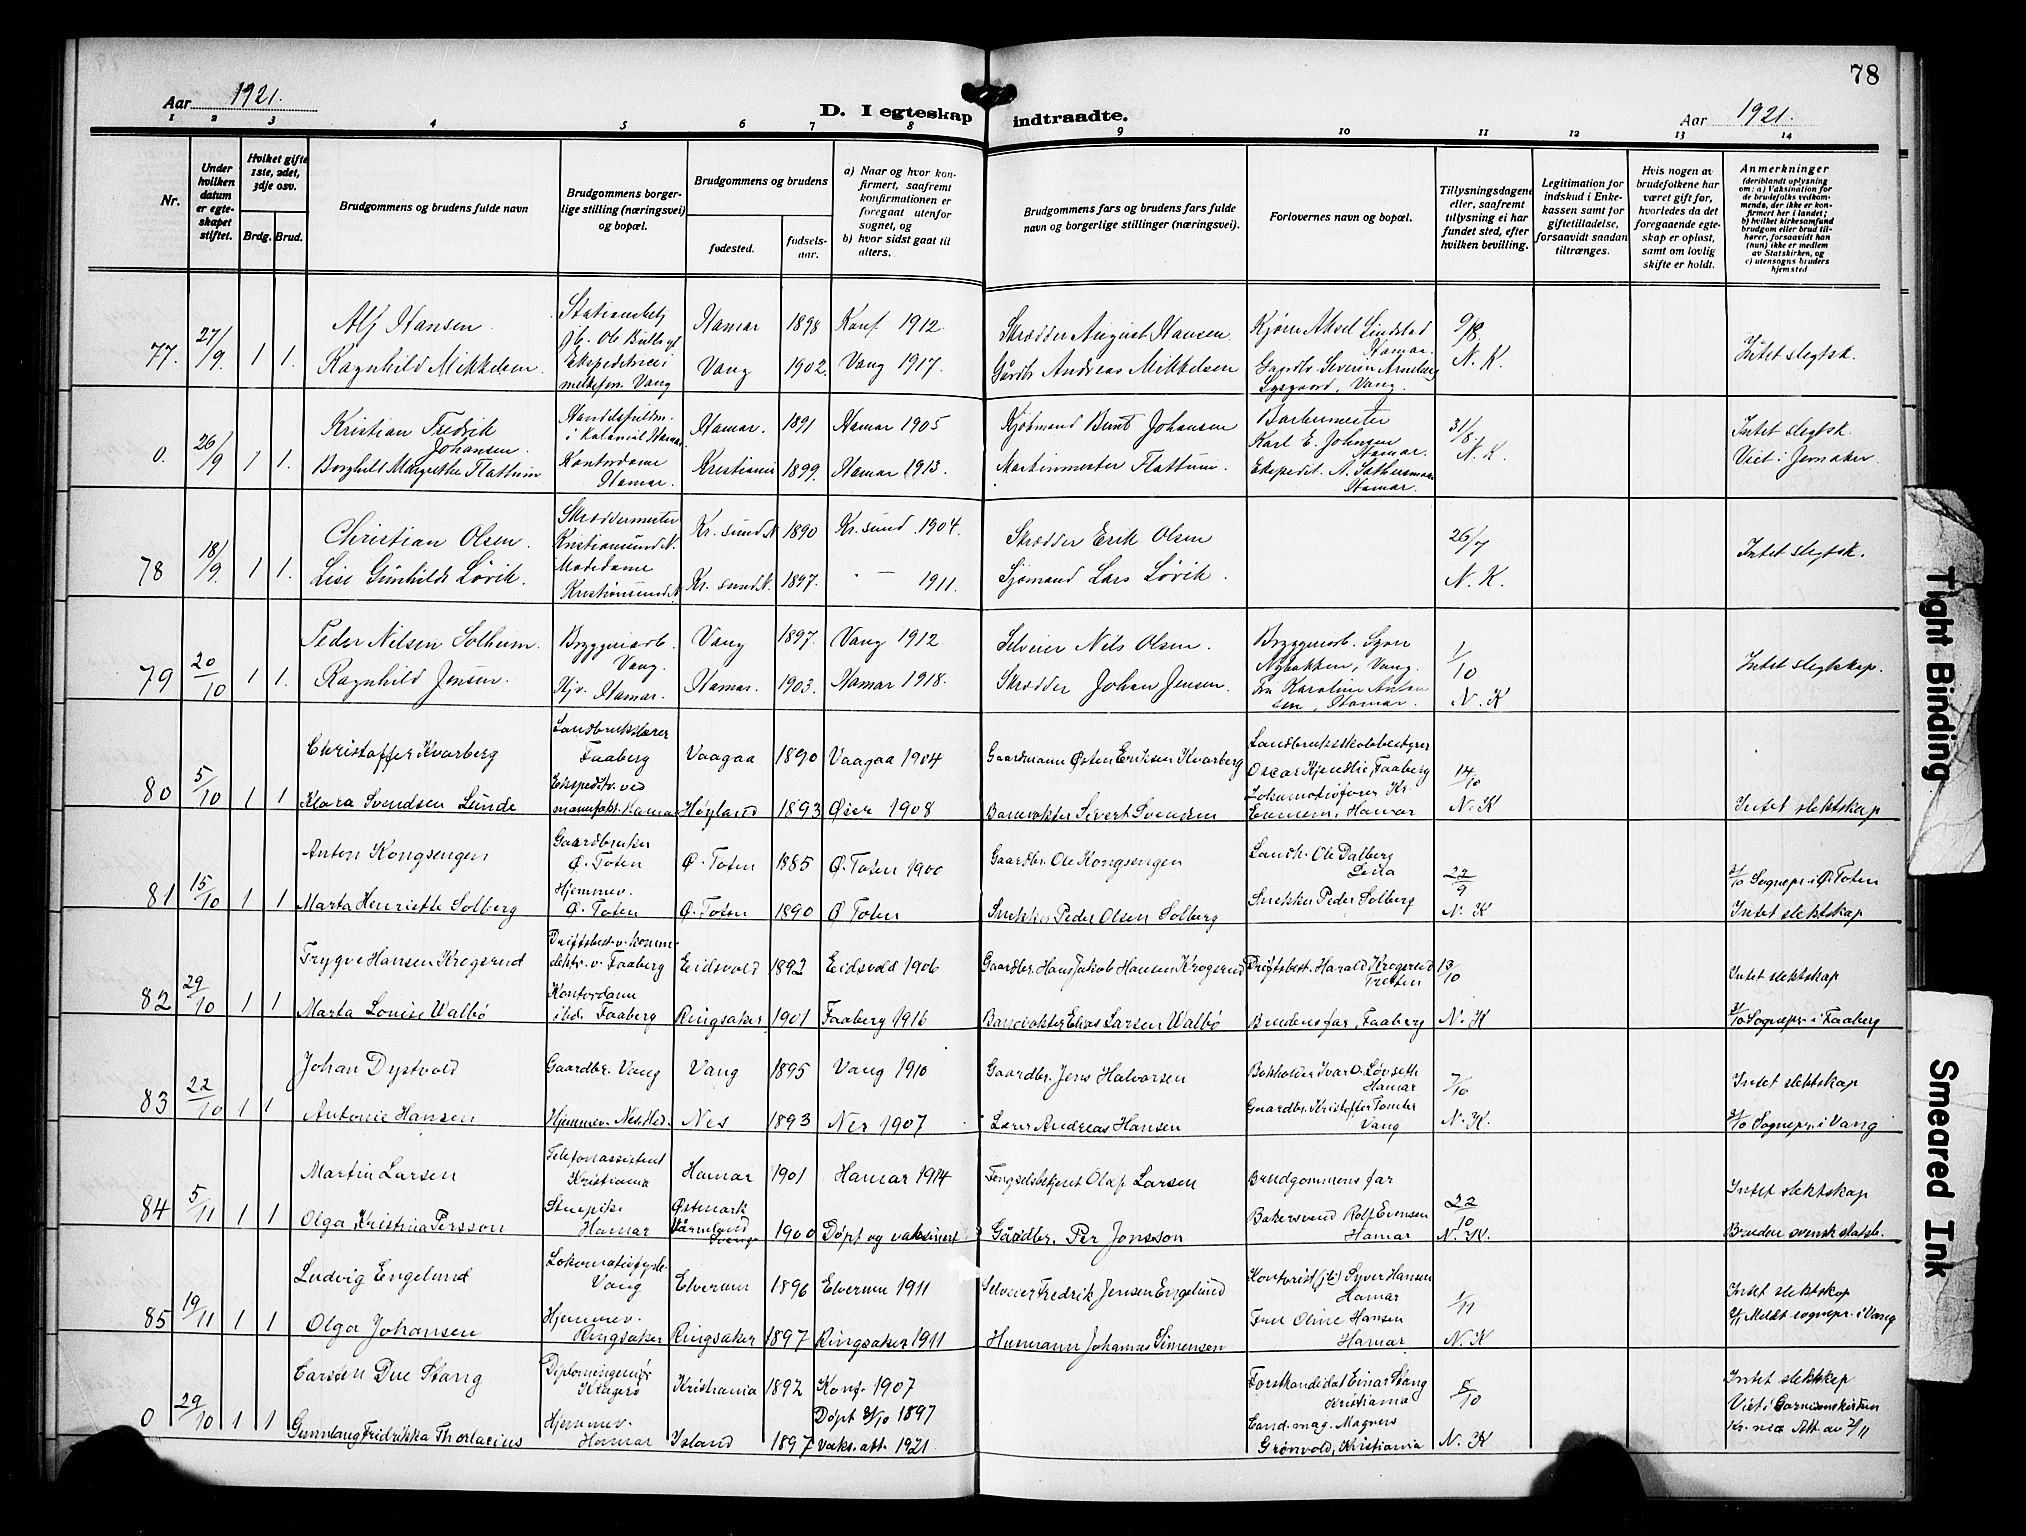 78
Aar 1921.
D. I egteskap indtraadte.
Aar 1921.
1 2 3 4 5 6 7 8 9 10 11 12 13 14
Nr.
Under hvilken datum er egteskapet stiftet.
Hvilket gifte 1ste, 2det, 3dje osv.
Brdg. Brud.
Brudgommens og brudens fulde navn
Brudgommens borgerlige stilling (næringsvei) og bopæl.
Brudgommens og brudens
fødested.
fødselsaar.
a) Naar og hvor konfirmert, saafremt konfirmationen er foregaat utenfor sognet, og
b) hvor sidst gaat til alters.
Brudgommens fars og brudens fars fulde navn og borgerlige stillinger (næringsvei).
Forlovernes navn og bopæl.
Tillysningsdagene eller, saafremt tillysning ei har fundet sted, efter hvilken bevilling.
Legitimation for indskud i Enkekassen samt for giftetilladelse, forsaavidt saadan tiltrænges.
Hvis nogen av brudefolkene har været gift før, hvorledes da det foregaaende egteskap er opløst, samt om lovlig skifte er holdt.
Anmerkninger
(deriblandt oplysning om: a) Vaksination for de brudefolks vedkommende, der ikke er konfirmert her i landet; b) hvilket kirkesamfund brudgom eller brud tilhører, forsaavidt han (hun) ikke er medlem av Statskirken, og c) utensogns bruders hjemsted
77. 27/9 1 1. Alf Hansen. Hamar 1898 Konf 1912. Skrædder August Hansen Kjørn. Aksel Lindstad Hamar. 9/8.
Ragnhild Mikkelsen. Ekspeditrice i melkefor. Vang Vang 1902. Vang 1917. Gårdbr Andreas Mikkelsen Lysgaard, Vang. N. K. Intet slegtsk.
0. 26/9 1 1. Kristian Fredrik Johansen. i Kolonial Hamar. Hamar. 1891 Hamar 1905 Kjøbmand Bernt Johansen Barbermester Karl E. Johnsen Hamar. 31/8 Intet slegtsk.
Borghild Margrethe Flattum Kontordame Hamar. Kristiania 1899. Hamar 1913. Flattum. Ekspedit. A. Hamar. N. K. Viet i Jevnaker
78 18/9. 1 1. Christian Olsen. Skræddermester Kristiansund N. Kr. sund N 1890 Kr. sund 1904. Skrædder Erik Olsen 26/7
Lise Gunhilds Løvik. Modedame Kristiansund N. Kr. sund N. 1897. - 1911. Sjømand Lars Løvik. N. K. Intet slegtsk.
79 20/10 1 1. Peder Nilsen Solhem. Bryggeriarb. Vang. Vang 1897. Vang 1912 Selveier Nils Olsen. Bryggeriarb. Nybakken, Vang. 1/10
Ragnhild Jensen. Hjv. Hamar. Hamar. 1903. Hamar 1918. Skrædder Johan Jensen. Fru Karoline Antonsen, Hamar. N. K Intet slegtskap.
80 5/10 1 1 Christoffer Kvarberg Landbrukslærer Faaberg Vaagaa 1890 Vaagaa 1904 Gaardmann Østen Eriksen Kvarberg Landbruksskolebestyrer Oscar Hjendlie, Faaberg 14/10
Klara Svendsen Lunde Ekspeditr. ved manufakt. Hamar Høyland 1893 Øier 1908 Banevokter Sivert Svendsen Lokomotivfører Kr. Hamar N. K Intet slektskap
81 15/10 1 1 Anton Kongsengen Gaardbruker Ø. Toten Ø. Toten 1885 Ø. Toten 1900 Gaardbr. Ole Kongsengen Landh. Ole Dalberg Lena 22/9 3/10 Sognepr. i Ø. Toten
Marta Henriette Solberg Hjemmev. Ø. Toten Ø. Toten 1890 Ø Toten Snekker Peder Olsen Solberg Snekker Peder Solberg N. K Intet slektskap
82 29/10 1 1 Trygve Hansen Krogsrud Driftsbest. v. komm. elektr. v. Faaberg Eidsvold 1892 Eidsvold 1906 Gaardbr. Hans Jakob Hansen Krogsrud Driftsbest. Harald Krogsrud Tretten 13/10 Intet slektskap
Marta Lovise Walbö Kontordame Faaberg Ringsaker 1901 Faaberg 1916 Banevokter Elias Larsen Walbö Brudens far, Faaberg N. K 3/10 Sognepr. i Faaberg
83 22/10 1 1 Johan Dystvold Gaardbr. Vang Vang 1895 Vang 1910 Gaardbr. Jens Halvorsen Bokholder Ivar O. Løvseth Hamar 7/10 Intet slektskap
Antonie Hansen Hjemmev. Nes Hed. Nes 1893 Nes 1907 Lærer Andreas Hansen Gaardbr. Kristoffer Tomter Vang N. K. 3/10 Sognepr. i Vang
84 5/11 1 1 Martin Larsen Telefonassistent Kristiania Hamar 1901 Hamar 1914 Fengselsbetjent Olaf Larsen Brudgommens far 22/10 Intet slektskap
Olga Kristina Persson Stuepike Hamar Østmark Värmland Sverige 1900 Døpt og vaksinert Gaardbr. Per Jonsson Bakersvend Rolf Evensen Hamar N. K. Bruden svensk statsb.
85 19/11 1 1 Ludvig Engelund Lokomotivfyrb. Vang Elverum 1896 Elverum 1911 Selveier Fredrik Jensen Engelund Kontorist (jb) Syver Hansen Hamar 1/11 Intet slektskap
Olga Johansen Hjemmev. Ringsaker Ringsaker 1897 Ringsaker 1911 Husmann Johannes Simensen Fru Oline Hansen Hamar N. K Meldt sognepr. i Vang
0 29/10 1 1 Carsten Due Stang Diplomingeniør Kragerø Kristiania 1892 Konf. 1907 Forstkandidat Einar Stang Kristiania 5/10 Intet slektskap
Gunnlaug Fridrikka Thorlacius Hjemmev. Hamar Island 1897 Døpt 3/10 1897 Vaks. att. 1921. Cand. mag. Magnus Grønvold, Kristiania N. K Viet i Garnisonskirken
Tight Binding
Smeared Ink